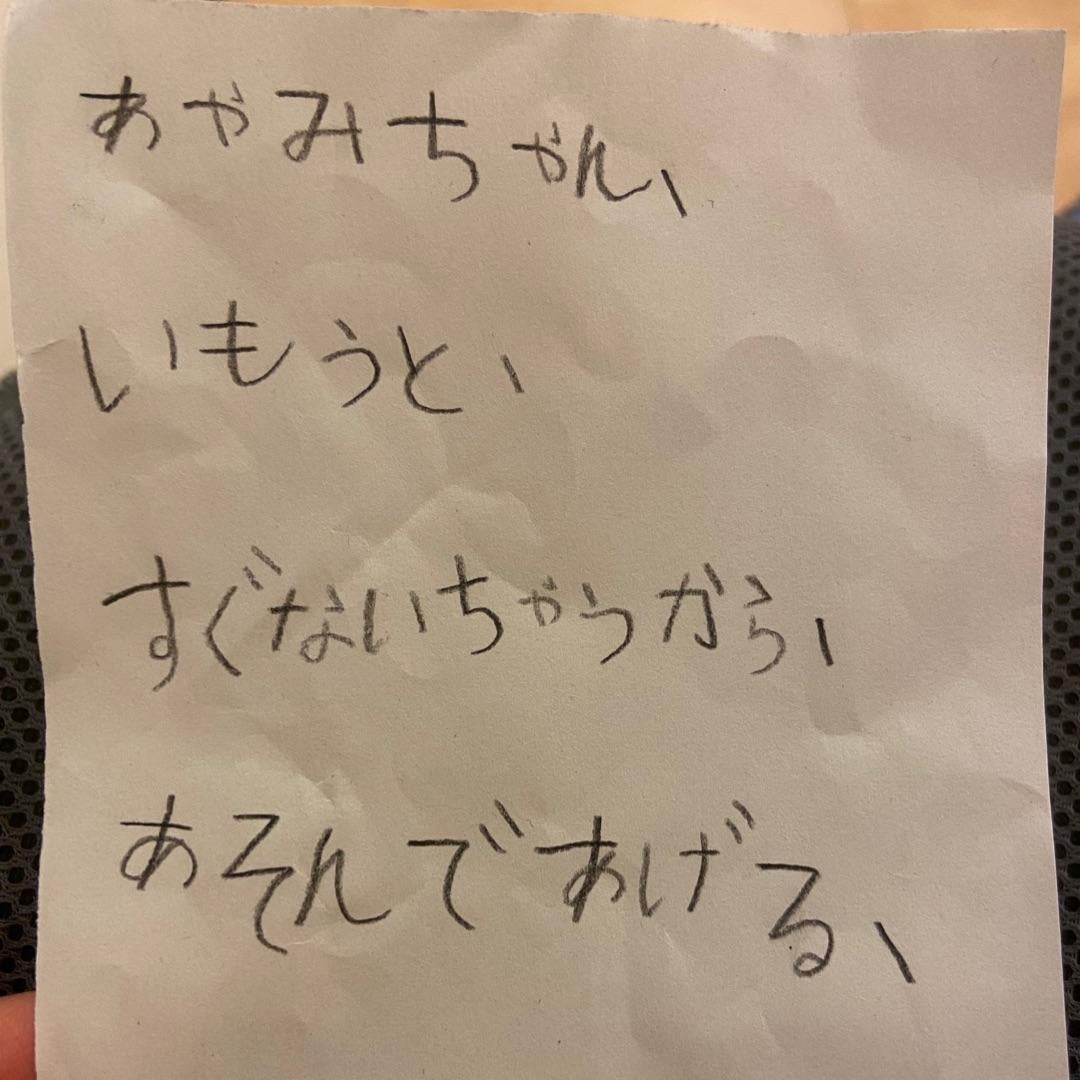 あやみちゃん、
いもうと、
すぐないちゃうから、
あそんであげる、